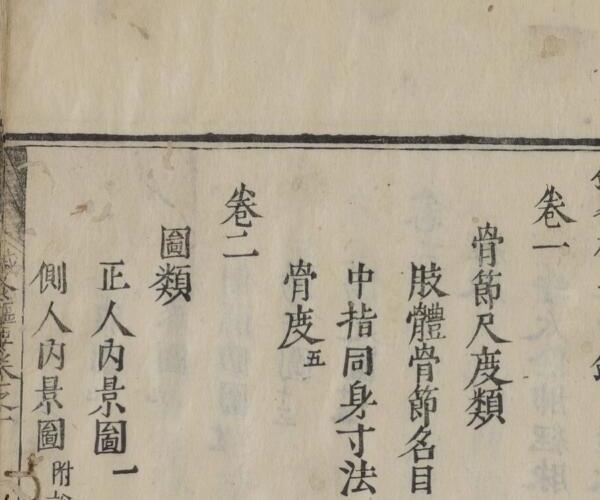 卷一
骨節尺度類
肢體骨節名目
中指同身寸法
骨度五
卷二
圖類
正人內景圖一
側人內景圖附